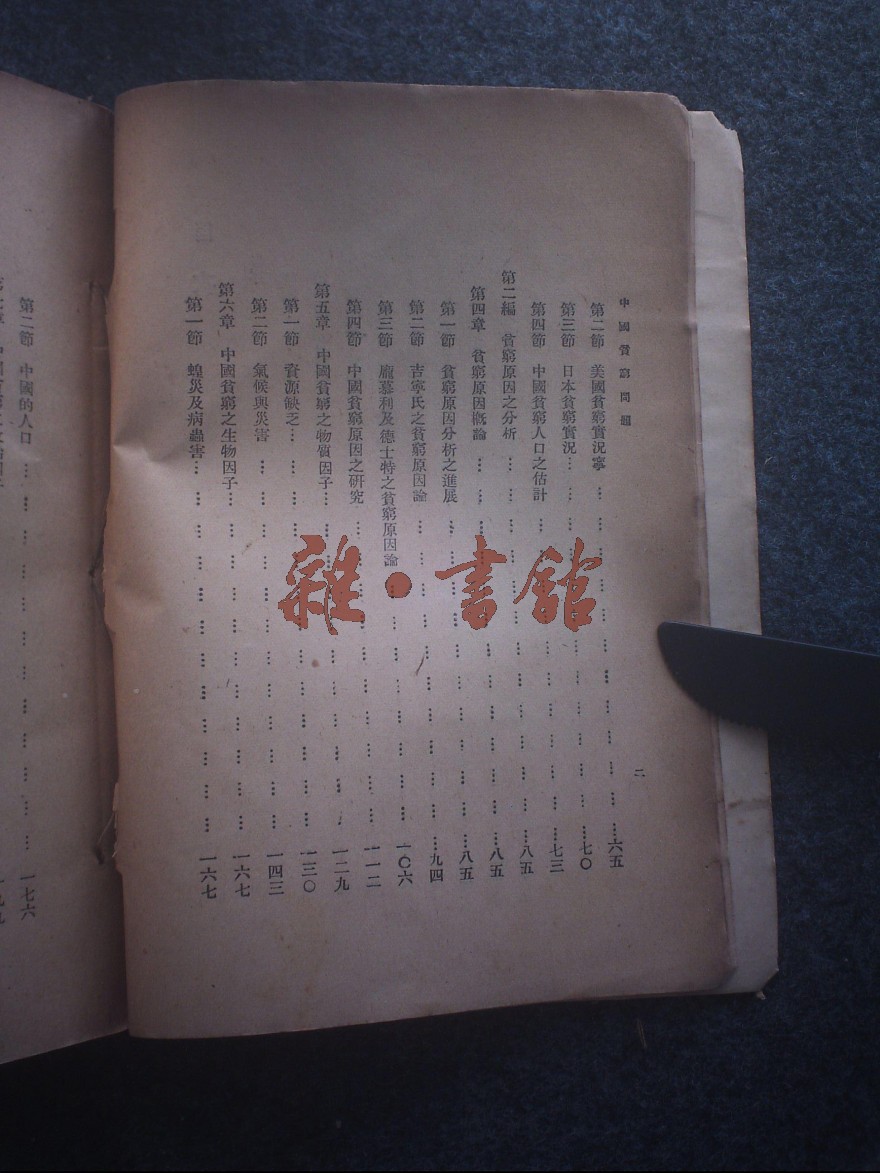 中國貧窮問題
二
第二節 美國貧窮實況寧……六五
第三節 日本貧窮實況……七〇
第四節 中國貧窮人口之估計……七三
第二編 貧窮原因之分析……八五
第四章 貧窮原因概論……八五
第一節 貧窮原因分析之進展……八五
第二節 吉寧氏之貧窮原因論……九四
第三節 龐慕利及德士特之貧窮原因論……一〇六
第四節 中國貧窮原因之研究……一一二
第五章 中國貧窮之物質因子……一二九
第一節 資源缺乏……一三〇
第二節 氣候與災害……一四三
第六章 中國貧窮之生物因子……一六七
第一節 蝗災及病蟲害……一六七
第二節 中國的人口……一七六
雜·書館